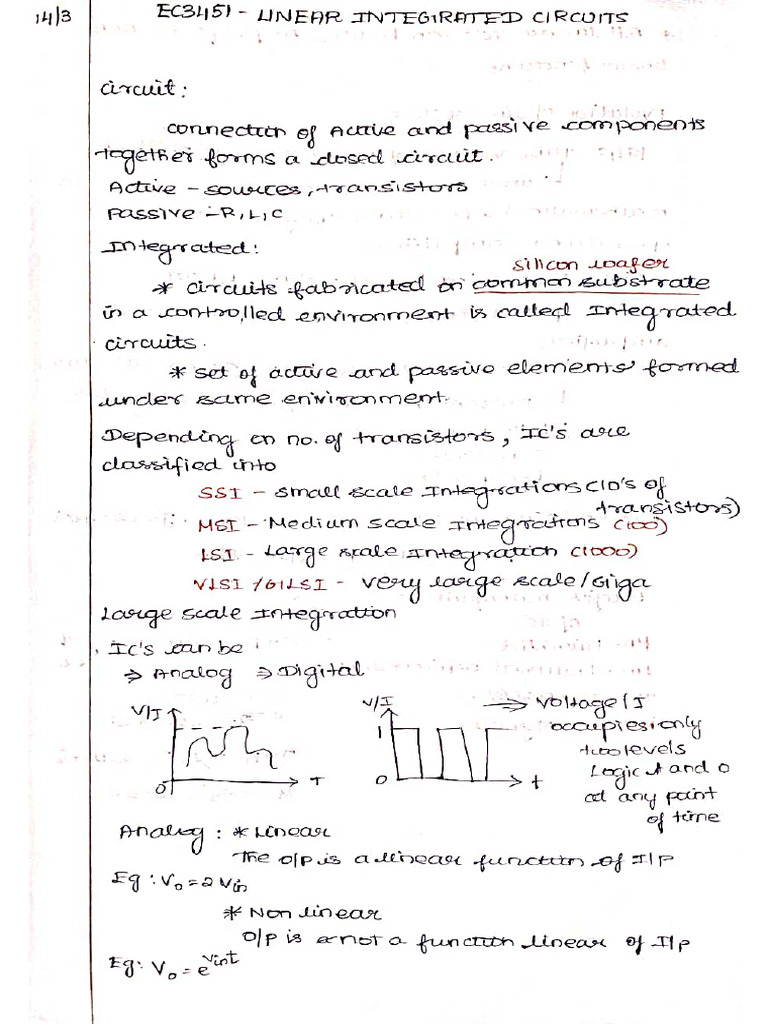 14/3
EC3451 - LINEAR INTEGRATED CIRCUITS
Circuit:
connection of Active and passive components
together forms a closed circuit.
Active - sources, transistors
Passive - R, L, C
Integrated:
silicon wafer
* circuits fabricated on common substrate
in a controlled environment is called Integrated
circuits.
* set of active and passive elements formed
under same environment.
Depending on no. of transistors, IC's are
classified into
SSI - small scale Integrations (10's of
transistors)
MSI - Medium scale Integrations (100)
LSI - Large scale Integration (1000)
VLSI /GLSI - Very large scale/Giga
Large scale Integration
IC's can be
⇒ Analog ⇒ Digital
V/I
0
T
V/I
1
0
t
⇒ Voltage/I
occupies only
two levels
Logic 1 and 0
at any point
of time
Analog : * Linear
The O/P is a linear function of I/P
Eg : V₀ = 2 Vin
* Non linear
O/P is a not a function linear of I/P
Eg: V₀ = e^Vint